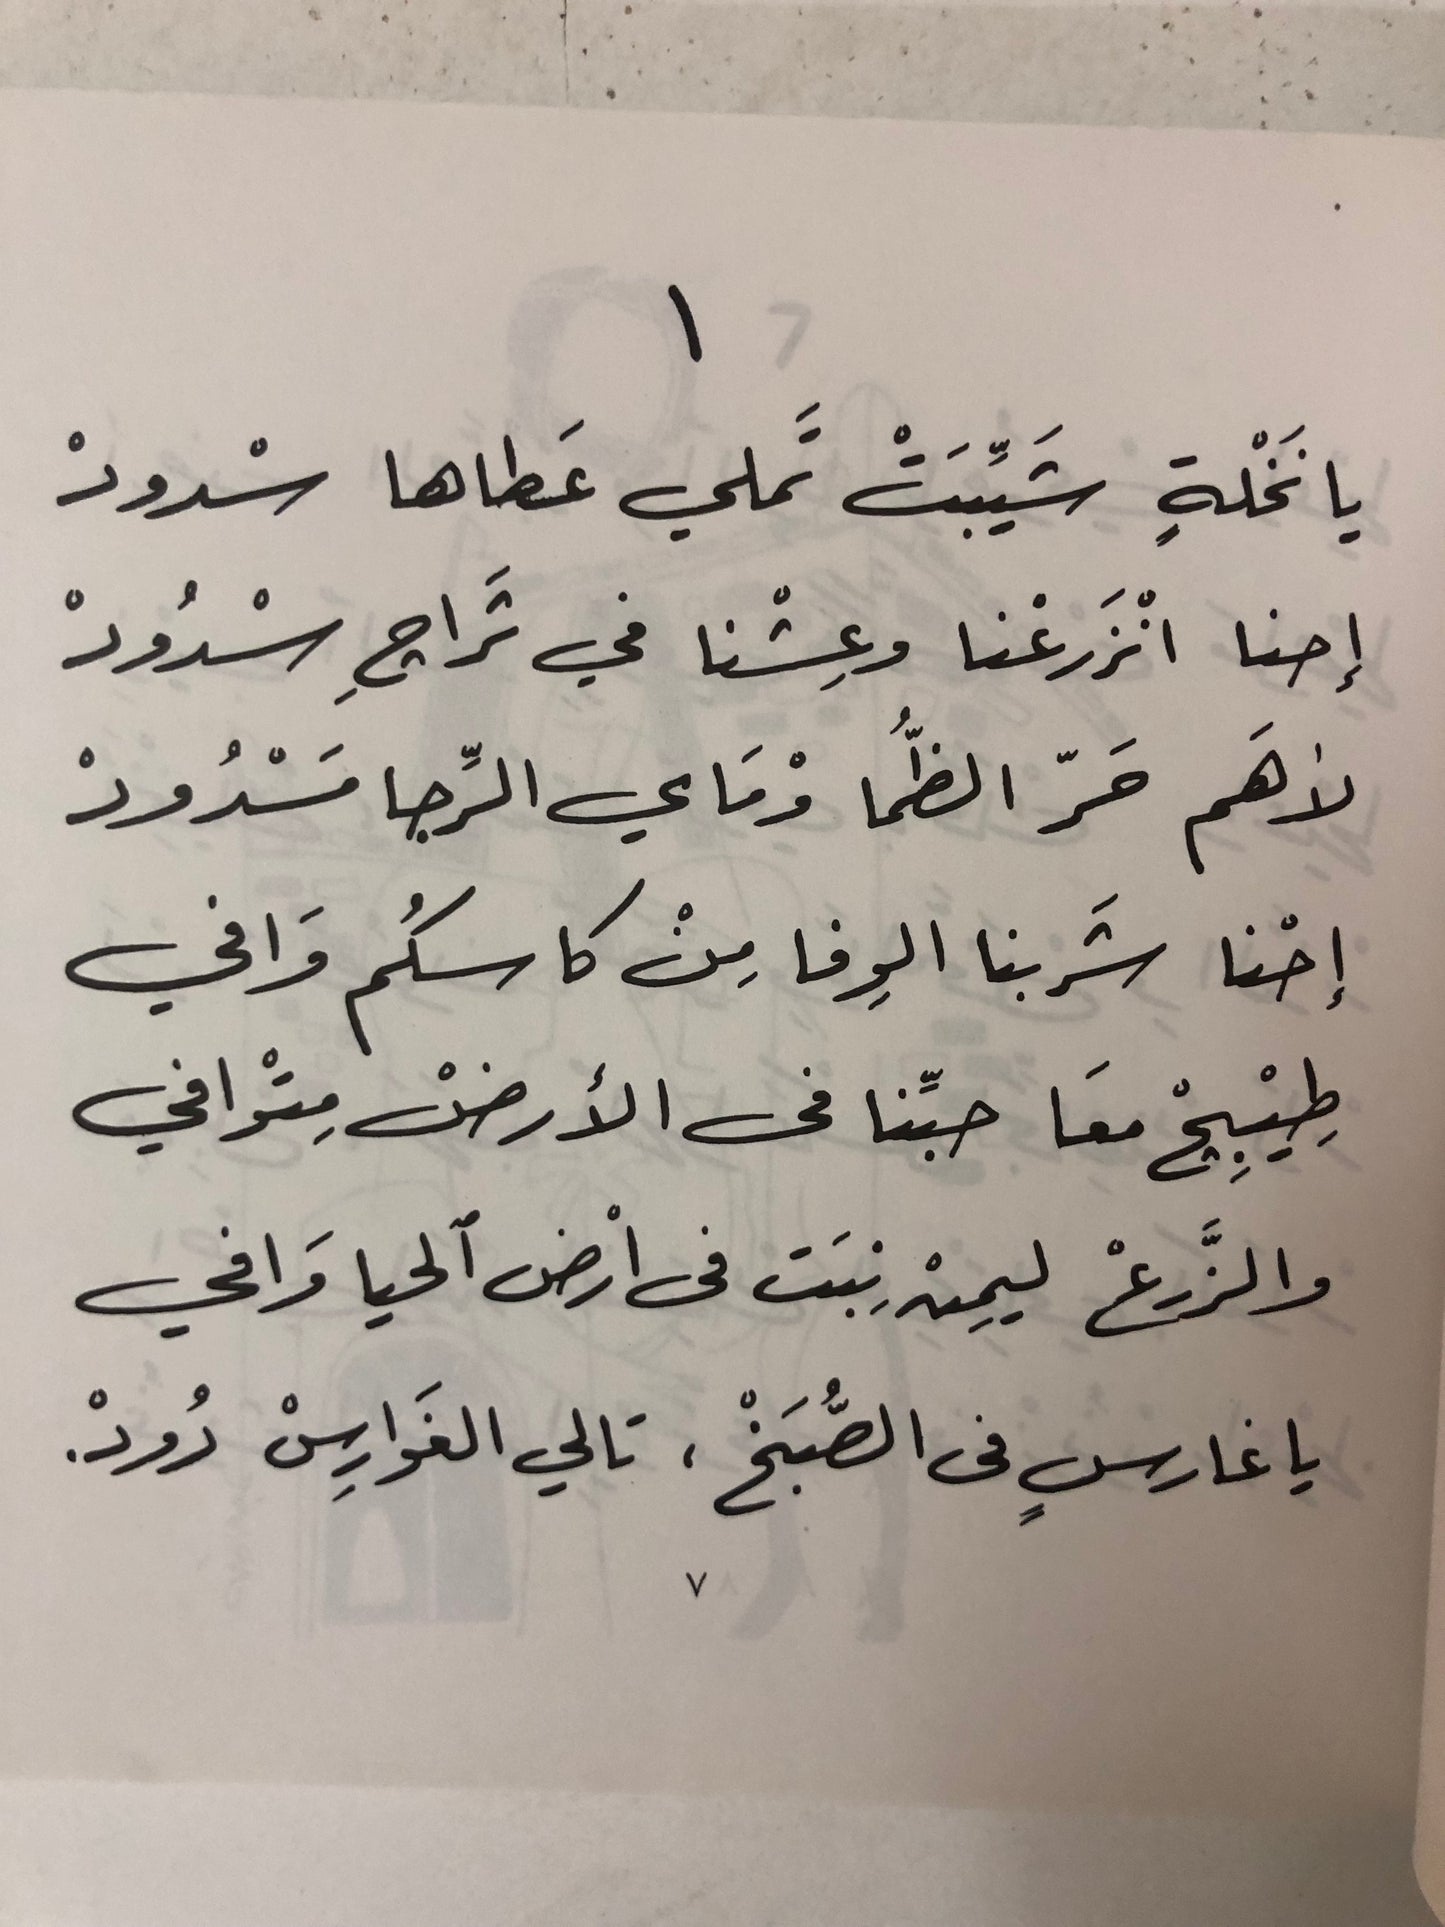 ١
يا نَخْلةٍ شَيِّبَتْ تَّملي عَطاها سْدودْ
إحنا انْزَرعْنا وعِشْنا في ثَراچِ سْدُودْ
لاهَم حَرّ الظُّما وْمَاي الرِّجا مَسْدُودْ
إحْنا شَربنا الوِفا مِنْ كاسكُم وَافي
طِيْبِچْ معَا حبِّنا فى الأرضْ مِتْوافي
والزَّرعْ ليمِنْ نِبَت فى أرْض ٱلحيا وَافي
يا غارسٍ فى الصُّبَخْ ، تالي الغَوارِسْ دُودْ.
٧